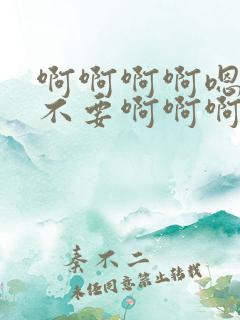 啊啊啊啊嗯
不要啊啊啊
秦不二
未经同意禁止转载